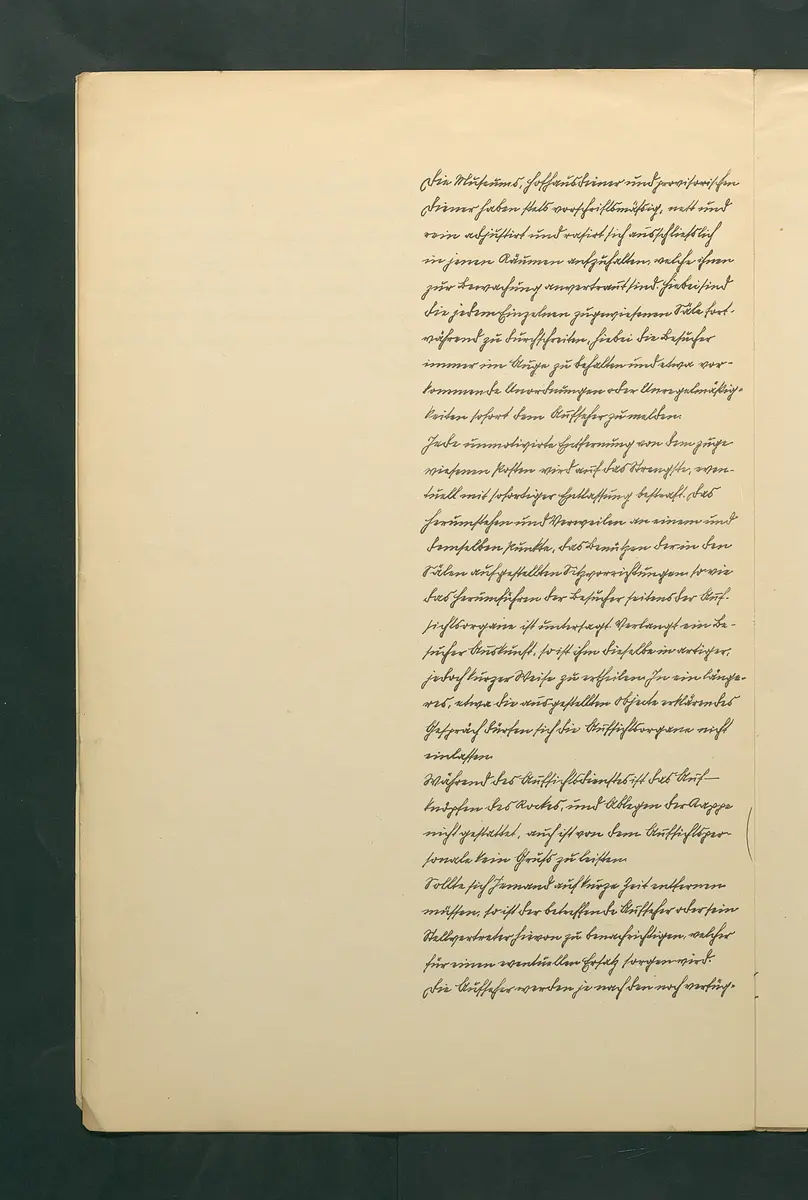 Die Museums, Hofhausdiener und provisorischen
Diener haben stets vorschriftsmäßig, nett und
rein adjustirt und rasirt sich ausschließlich
in jenen Räumen aufzuhalten, welche ihnen
zur Bewachung anvertraut sind. Hiebei sind
die jedem Einzelnen zugewiesenen Säle fort-
während zu durchschreiten, hiebei die Besucher
immer im Auge zu behalten und etwa vor-
kommende Unordnungen oder Unregelmäßig-
keiten sofort dem Aufseher zu melden.
Jede unmotivirte Entfernung von dem zuge
wiesenen Posten wird auf das Strengste, even-
tuell mit sofortiger Entlassung bestraft. Das
Herumstehen und Verweilen an einem und
demselben Punkte, das Benützen der in den
Sälen aufgestellten Sitzvorrichtungen, sowie
das Herumführen der Besucher seitens der Auf-
sichtsorgane ist untersagt. Verlangt ein Be-
sucher Auskunft, so ist ihm dieselbe in artiger,
jedoch kurzer Weise zu ertheilen. In ein länge-
res, etwa die ausgestellten Objecte erklärendes
Gespräch dürfen sich die Aufsichtsorgane nicht
einlassen.
Während des Aufsichtsdienstes ist das Auf-
knöpfen des Rockes, und Ablegen der Kappe
nicht gestattet, auch ist von dem Aufsichtsper-
sonale kein Gruß zu leisten.
Sollte sich Jemand auf kurze Zeit entfernen
müssen, so ist der betreffende Aufseher oder sein
Stellvertreter hievon zu benachrichtigen, welcher
für einen eventuellen Ersatz sorgen wird.
Die Aufseher werden je nach den noch verfüg-